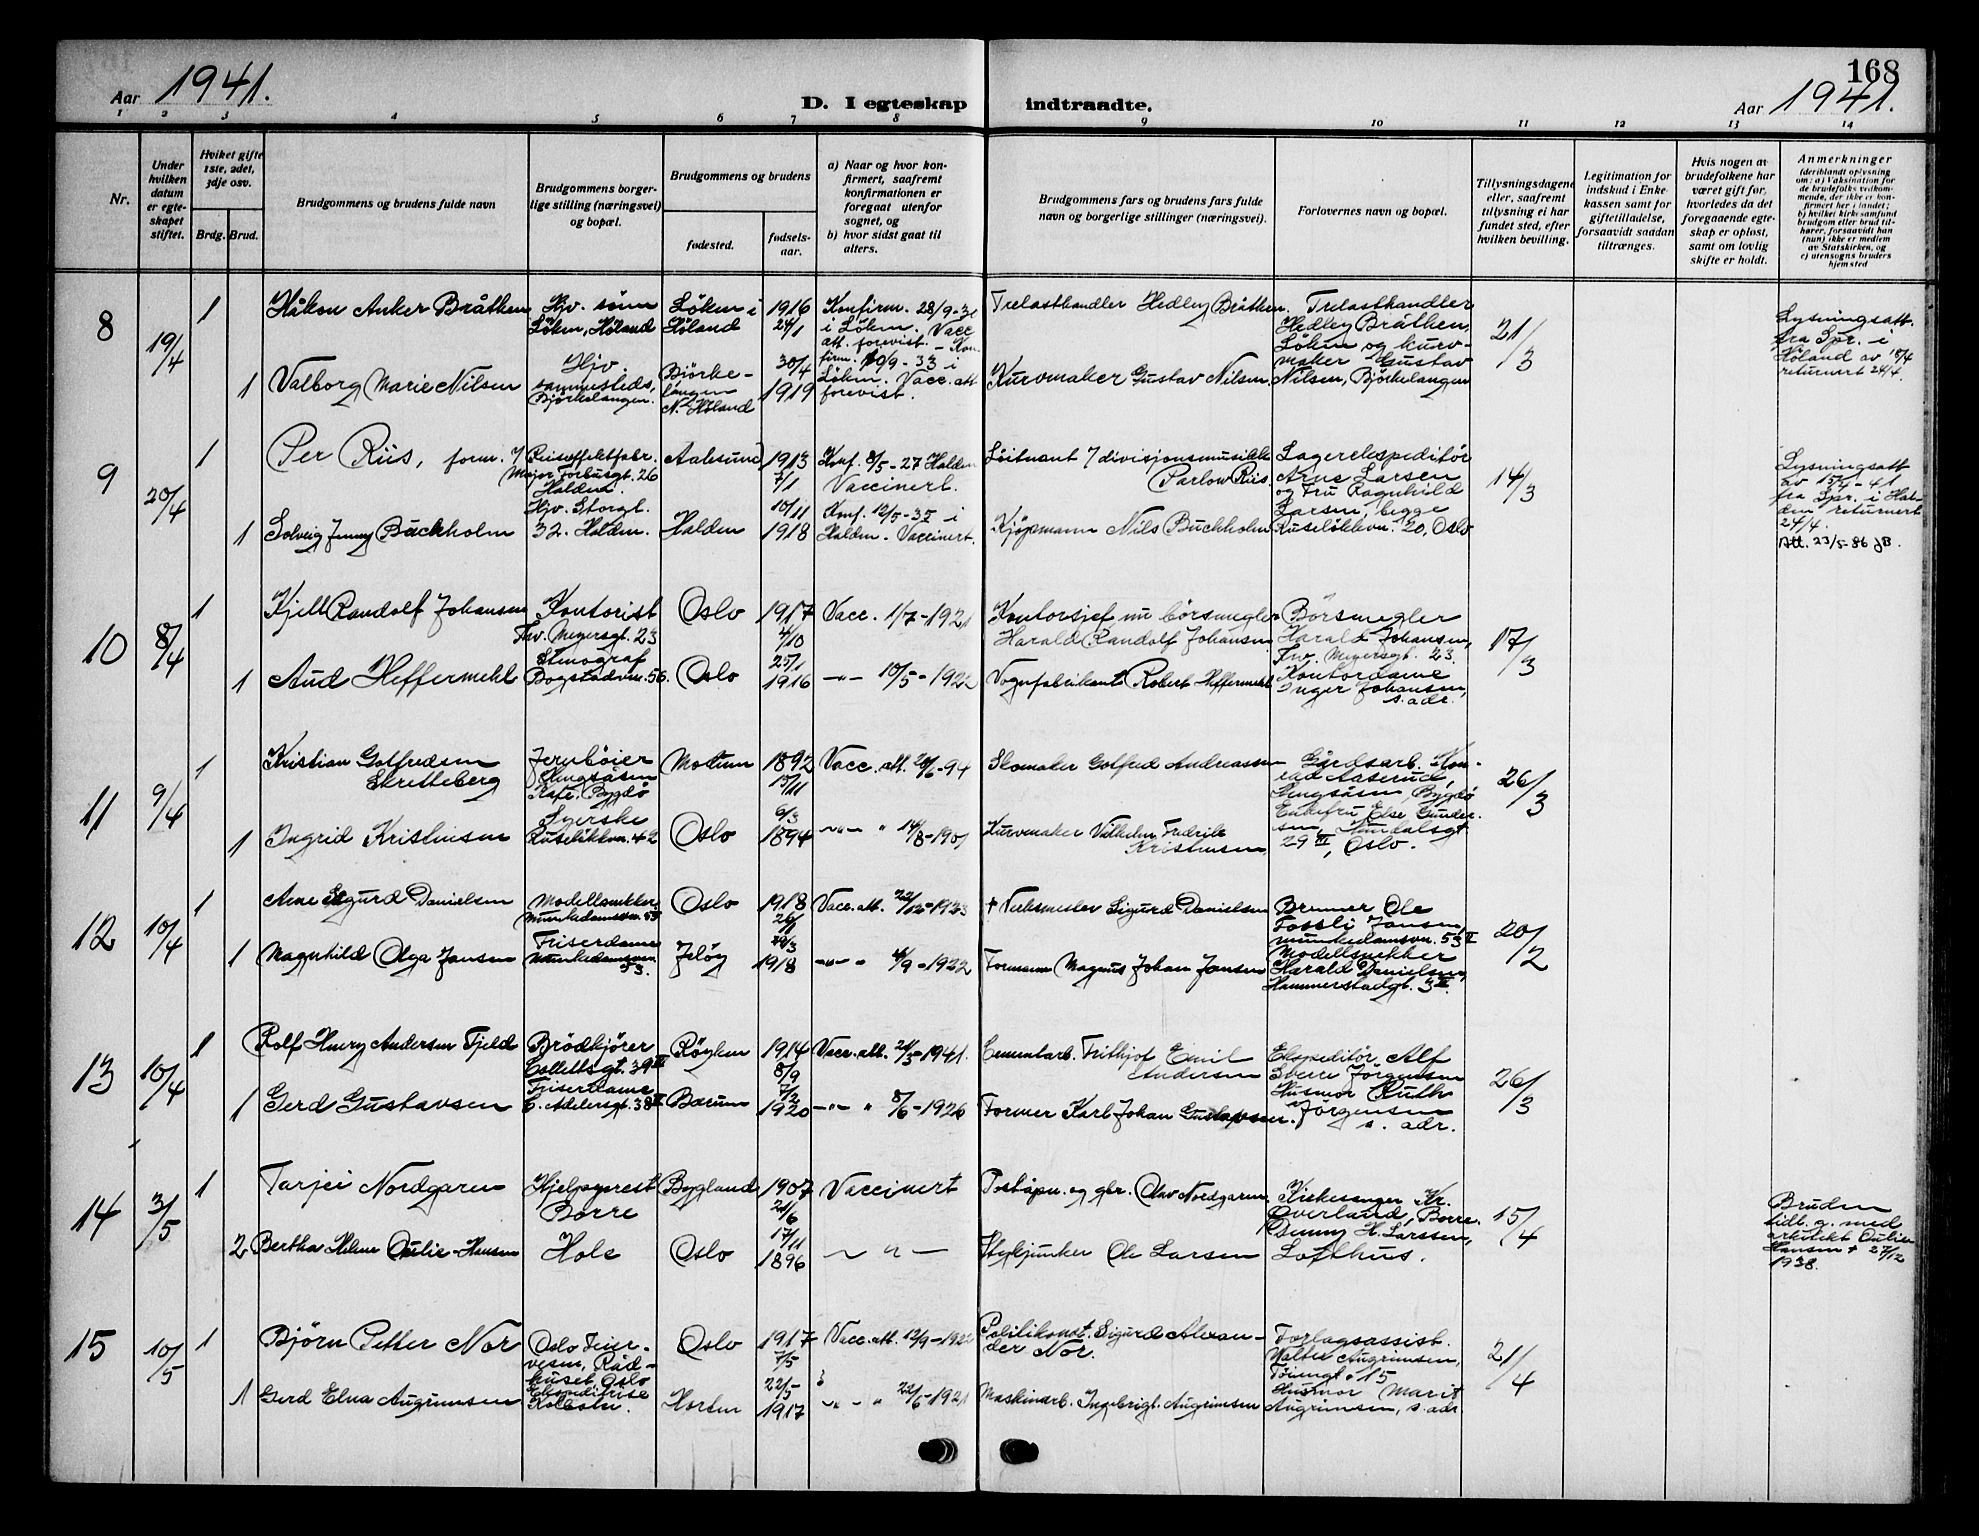 168
Aar 1941.
D. I egteskap indtraadte.
Aar 1941.
1 2 3 4 5 6 7 8 9 10 11 12 13 14
Nr.
Under hvilken datum er egteskapet stiftet.
Hvilket gifte 1ste, 2det, 3dje osv.
Brdg. Brud.
Brudgommens og brudens fulde navn
Brudgommens borgerlige stilling (næringsvei) og bopæl.
Brudgommens og brudens
fødested.
fødselsaar.
a) Naar og hvor konfirmert, saafremt konfirmationen er foregaat utenfor sognet, og
b) hvor sidst gaat til alters.
Brudgommens fars og brudens fars fulde navn og borgerlige stillinger (næringsvei).
Forlovernes navn og bopæl.
Tillysningsdagene eller, saafremt tillysning ei har fundet sted, efter hvilken bevilling.
Legitimation for indskud i Enkekassen samt for giftetilladelse, forsaavidt saadan tiltrænges.
Hvis nogen av brudefolkene har været gift før, hvorledes da det foregaaende egteskap er opløst, samt om lovlig skifte er holdt.
Anmerkninger
(deriblandt oplysning om: a) Vaksination for de brudefolks vedkommende, der ikke er konfirmert her i landet;
b) hvilket kirkesamfund brudgom eller brud tilhører, forsaavidt han (hun) ikke er medlem av Statskirken, og
c) utensogns bruders hjemsted
8 19/4
1 Håkon Anker Bråthen
Hjv. sønn
Løken, Høland
Løken i
Høland
1916
24/1
Konfirm. 28/9-31
i Løken. Vacc.
att. forevist.
Trelasthandler Hedley Bråthen.
Trelasthandler
Hedley Bråthen,
Løken og kurv-
maker Gustav
Nilsen, Bjørkelangen
21/3
Lysningsatt.
fra Spr. i
Høland av 18/4
returnert 24/4.
1 Valborg Marie Nilsen
Hjv.
sammesteds,
Bjørkelangen.
Bjørke-
langen
N. Høland
30/4
1919
Konfirm. 10/9-33 i
Løken. Vacc. att.
forevist.
Kurvmaker Gustav Nilsen
9 20/4
1 Per Riis, form. i
Reiseffektfabr.
Major Forbusgt. 26
Halden.
Aalesund
1913
7/1
Konf. 8/5-27 Halden
Vaccinert.
Løitnant i divisjonsmusikk
Parlow Riis
Lagerekspeditør
Arne Larsen
og Fru Ragnhild
Larsen, begge
Ruseløkkvn. 20, Oslo
14/3
Lysningsatt
av 15/4-41
fra Spr. i Hal-
den returnert
24/4.
Att. 23/5-86 JB.
1 Solveig Jenny Buckholm
Hjv. Storgt.
32. Halden.
Halden
10/11
1918
Konf. 12/5-35 i
Halden. Vaccinert.
Kjøpmann Nils Buckholm
10 8/4
1 Kjell Randolf Johansen
Kontorist
Thv. Meyersgt. 23
Oslo
1917
4/10
Vacc. 1/7-1921
Kontorsjef, nu børsmegler
Harald Randolf Johansen
Børsmegler
Harald Johansen,
Thv. Meyersgt. 23.
Kontordame
Inger Johansen,
s. adr.
17/3
1 Aud Heffermehl
Stenograf
Bogstadvn. 56.
Oslo
25/1
1916
-"- 10/5-1922
Vognfabrikant Robert Heffermehl
11 9/4
1 Kristian Gotfredsen
Skretteberg
Jernbøier
Kongsåsen
Kafe, Bygdø
Modum
1892
13/11
Vacc. att. 20/6-94
Skomaker Gotfred Andreassen
Gårdsarb. Kon-
rad Aaserud,
Kongsåsen, Bygdø
Enkefru Else Gunder-
sen,
29 III, Oslo.
26/3
1 Ingrid Kristensen
Syerske
Ruseløkkvn. 42
Oslo
6/3
1894
-"- " 14/8-1901
Kurvmaker Vilhelm Fredrik
Kristensen
12 10/4
1 Arne Sigurd Danielsen
Modellsnekker
Munkedamsvn. 53
Oslo
1918
26/1
Vacc. att. 22/12-1923
+ Verksmester Sigurd Danielsen
Brenner Ole
Fossli Jansen,
Munkedamsvn. 53 II
Modellsnekker
Harald Danielsen,
Hammerstadgt. 3 II.
20/2
1 Magnhild Olga Jansen
Friserdame
Munkedamsvn.
53.
Jeløy
29/3
1918
-"- " 4/9-1922
Formann Magnus Johan Jansen
13 10/4
1 Rolf Henry Andersen Fjeld
Brødkjører
Collettsgt. 39 III
Røyken
1914
8/9
Vacc. att. 21/3-1941.
Cementarb. Frithjof Emil
Andersen
Ekspeditør Alf
Sverre Jørgensen
Husmor Ruth
Jørgensen
s. adr.
26/3
1 Gerd Gustavsen
Friserdame
C. Adelersgt. 38 II
Bærum
7/2
1920
-"- " 8/6-1926
Former Karl Johan Gustavsen.
14 3/5
1 Tarjei Nordgaren
Hjelpeprest
Borre
Bygland
1907
21/6
Vaccinert
Poståpn. og gbr. Olav Nordgaren.
Kirkesanger Kr.
Øverland, Borre.
H. Larssen,
Lofthus.
15/4
Bruden
tidl. g. med
arkitekt Oulie-
Hansen + 27/12
1938.
2 Berthe Helene Oulie-Hansen
Hole
Oslo
17/11
1896
- " -
Ole Larsen
15 10/5
1 Bjørn Petter Nor
Oslo Feier-
vesen, Råd-
huset, Oslo
Oslo
1917
7/5
Vacc. att. 12/9-1922
Politikonst. Sigurd Alexan-
der Nor.
Forlagsassist.
Walter Augrimsen,
Tøiengt. 15
Husmor Marit
Augrimsen, s. adr.
21/4
1 Gerd Elna Augrimsen
Ekspeditrise
Kolbotn.
Horten
22/5
1917
-"- " 22/6-1921
Maskinarb. Ingebrigt Augrimsen